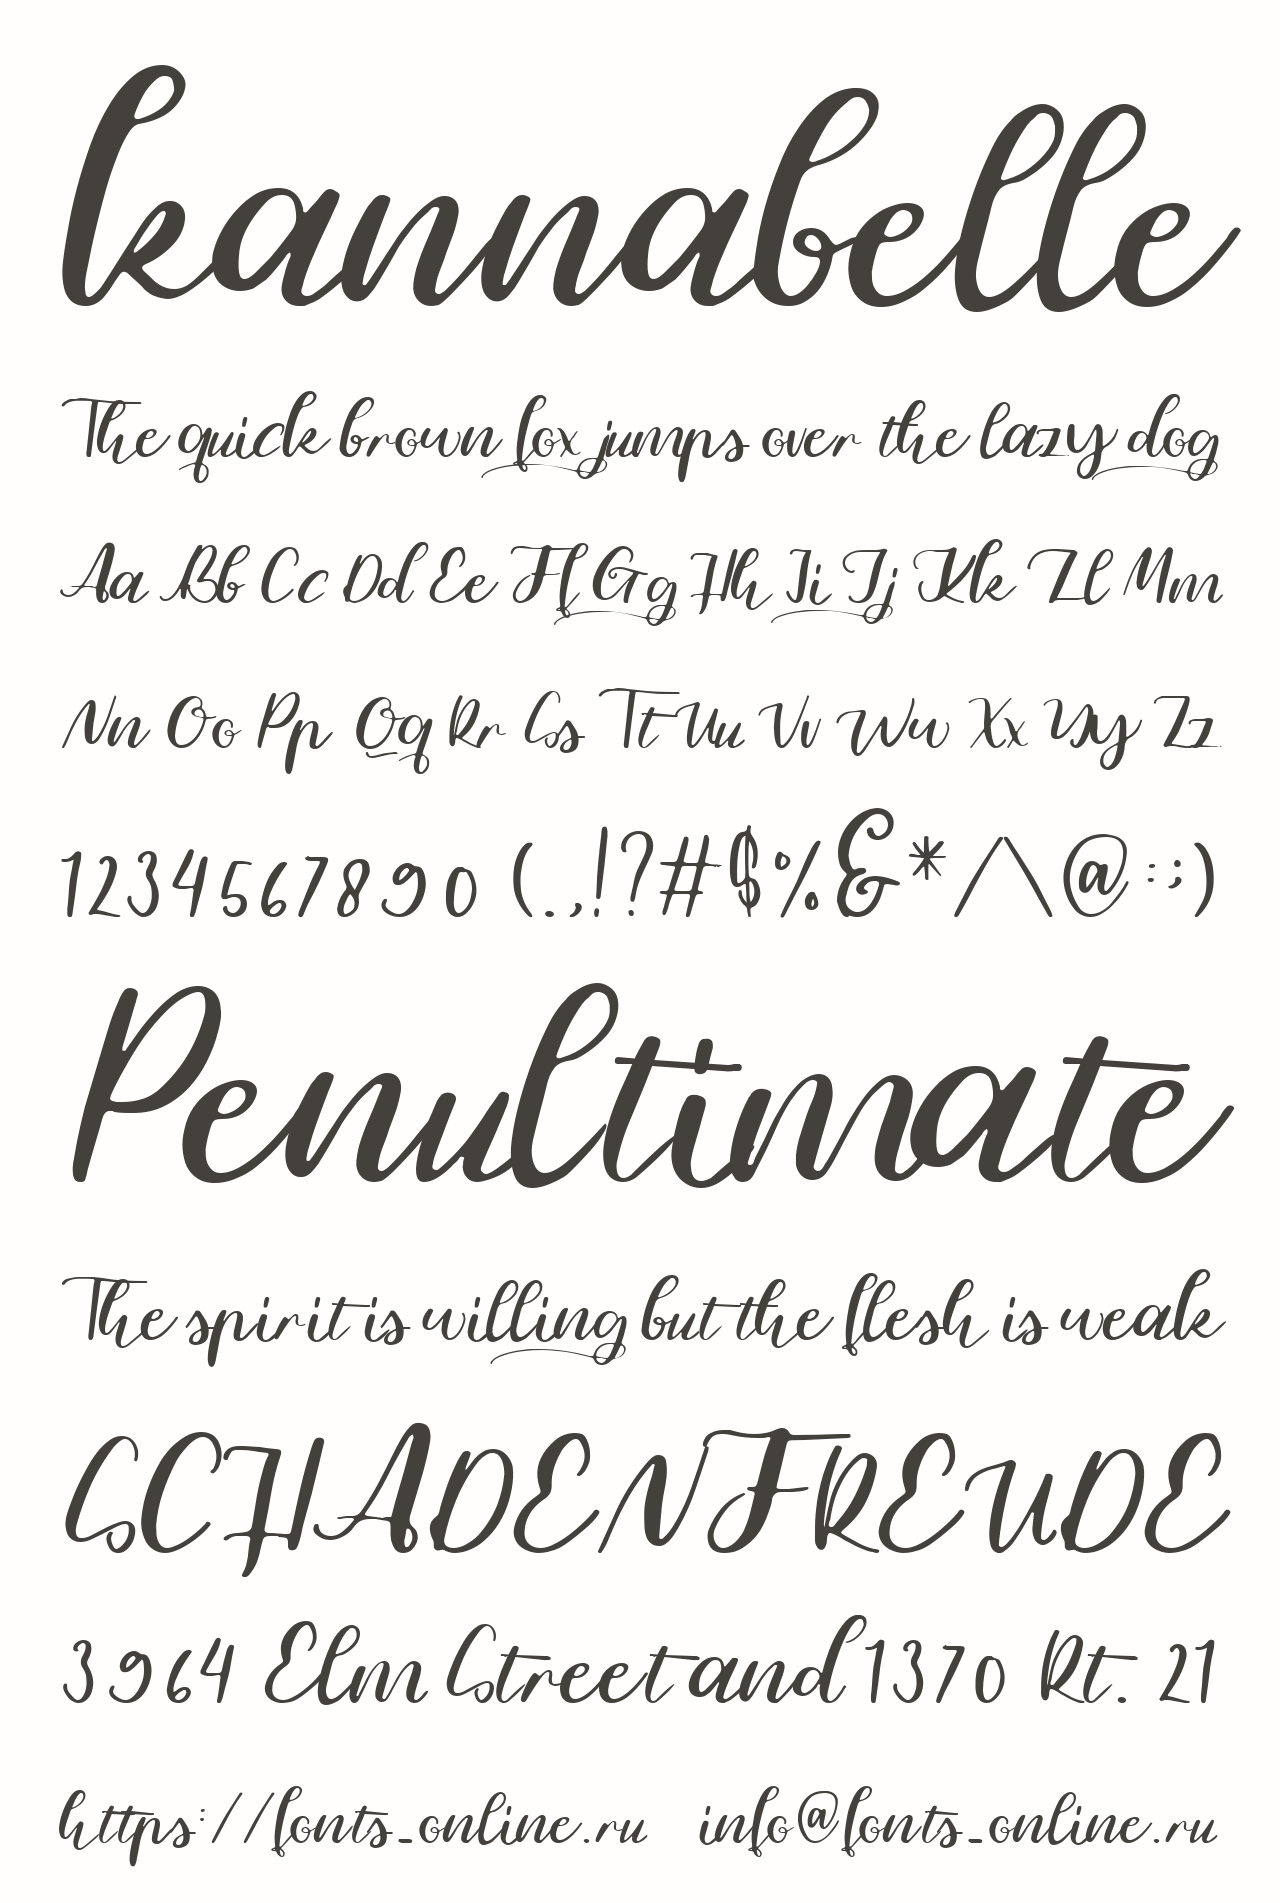 kannabelle
The quick brown fox jumps over the lazy dog
Aa Bb Cc Dd Ee Ff Gg Hh Ii Jj Kk Ll Mm
Nn Oo Pp Qq Rr Ss Tt Uu Vv Ww Xx Yy Zz
1234567890 (.,!?#$%&*/\@:;)
Penultimate
The spirit is willing but the flesh is weak
SCHADENFREUDE
3964 Elm Street and 1370 Rt. 21
https://fonts-online.ru info@fonts-online.ru